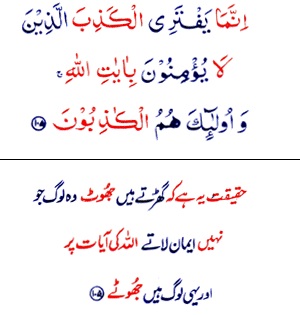 اِنَّمَا يَفْتَرِى الْكَذِبَ الَّذِيْنَ
لَا يُؤْمِنُوْنَ بِاٰيٰتِ اللّٰهِ ۚ
وَ اُولٰٓئِكَ هُمُ الْكٰذِبُوْنَ ۝۱۰۵
حقیقت یہ ہے کہ گھڑتے ہیں جھُوٹ وہ لوگ جو
نہیں ایمان لاتے اللہ کی آیات پر
اور یہی لوگ ہیں جھُوٹے ۝۱۰۵